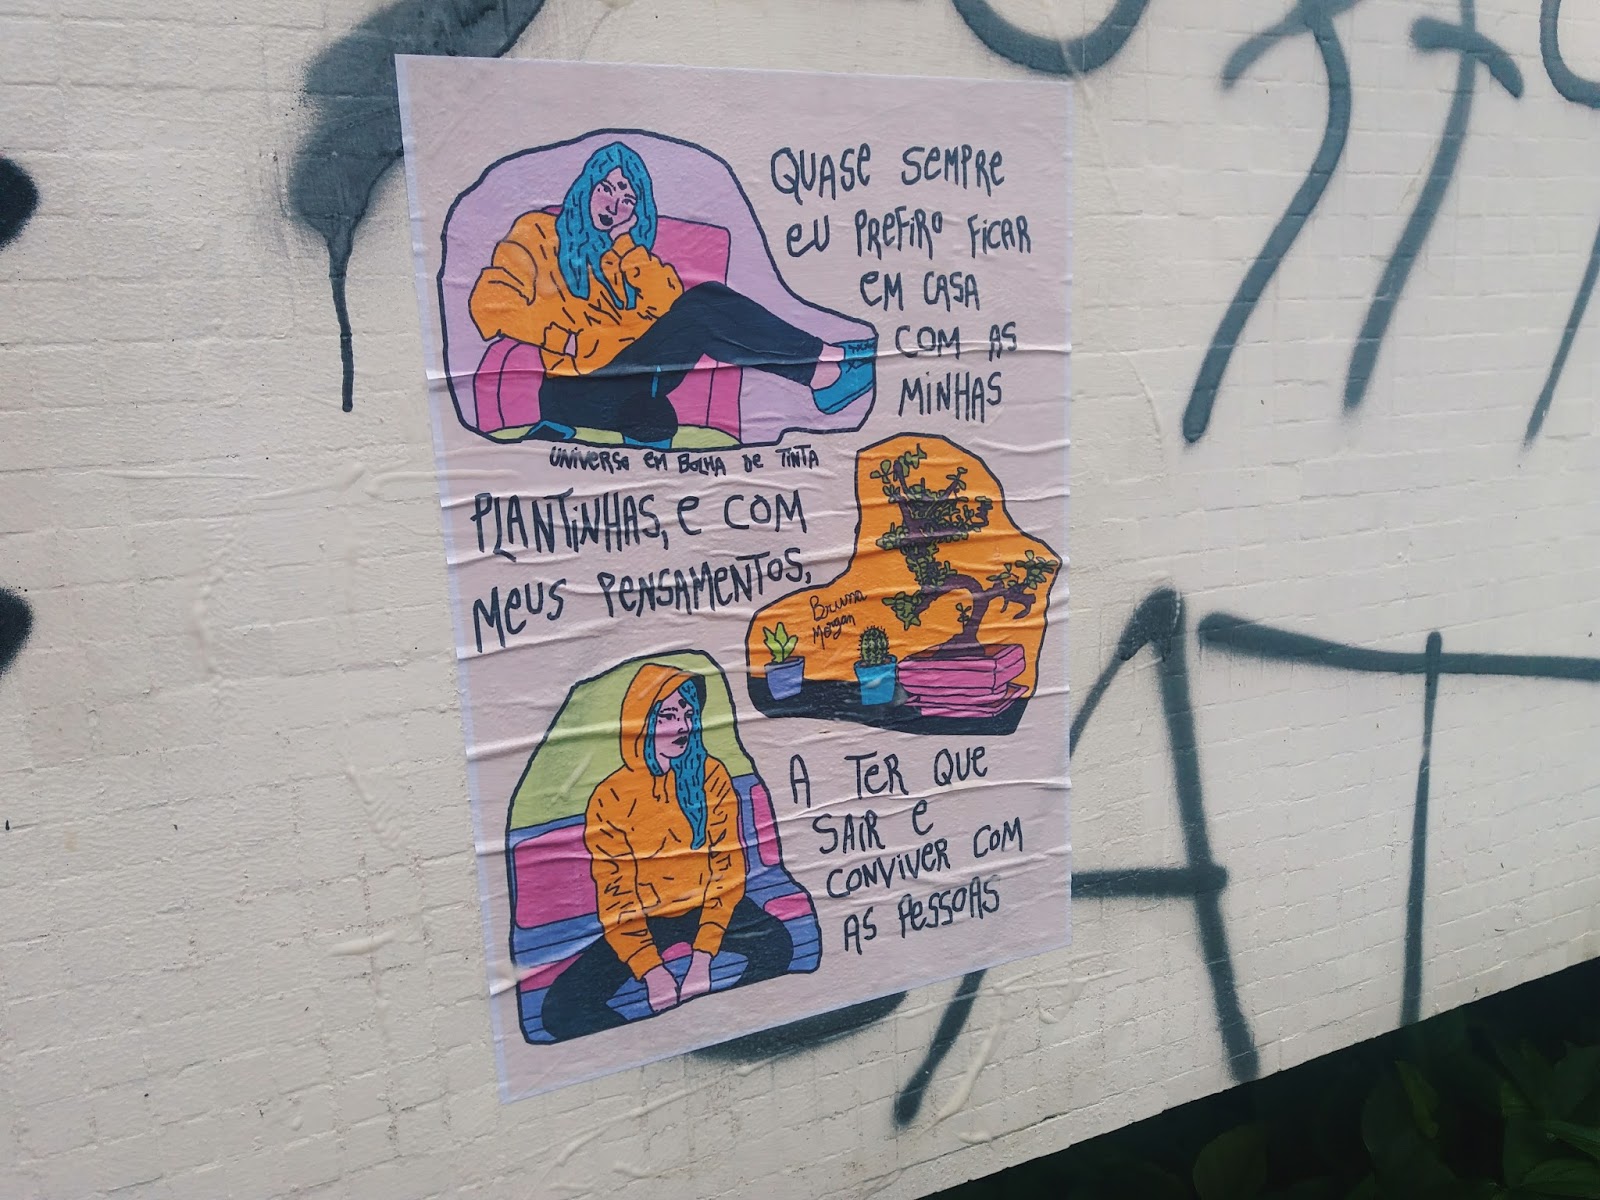 QUASE SEMPRE
EU PREFIRO FICAR
EM CASA
COM AS
MINHAS
UNIVERSO EM BOLHA DE TINTA
PLANTINHAS, E COM
MEUS PENSAMENTOS,
Bruna
Morgan
A TER QUE
SAIR E
CONVIVER COM
AS PESSOAS
AT